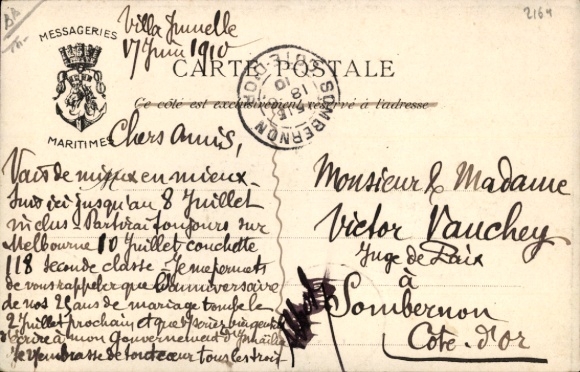 2164
Villa Junelle
17 Juin 1910
MESSAGERIES
MARITIMES
CARTE POSTALE
Ce côté est exclusivement réservé à l'adresse
SOMBERNON
COTE-D'OR
18
10
Chers Amis,
Vais de mieux en mieux -
Suis ici jusqu'au 8 Juillet
inclus - Partirai toujours sur
Melbourne 10 Juillet couchette
118 seconde classe - Je me permets
de vous rappeler que l'anniversaire
de nos 25 ans de mariage tombe le
2 Juillet prochain et que seriez bien gentils
d'écrire à mon Gouvernement d'
Je vous embrasse de tout cœur tous les trois
Monsieur & Madame
Victor Vauchey
Juge de Paix
à
Sombernon
Côte-d'Or